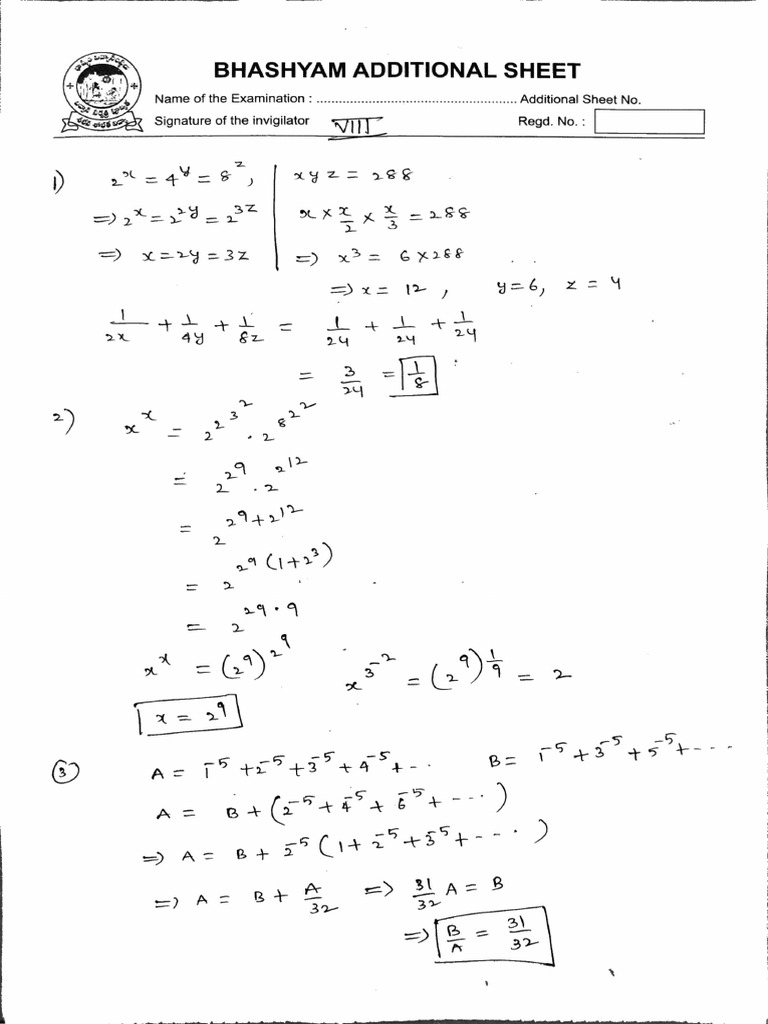 BHASHYAM ADDITIONAL SHEET
Name of the Examination : ........................................................ Additional Sheet No.
Signature of the invigilator VIII Regd. No. :
1) 2^x = 4^y = 8^z, xyz = 288
⇒ 2^x = 2^{2y} = 2^{3z} x × x/2 × x/3 = 288
⇒ x = 2y = 3z ⇒ x^3 = 6 × 288
⇒ x = 12, y = 6, z = 4
1/2x + 1/4y + 1/8z = 1/24 + 1/24 + 1/24
= 3/24 = 1/8
2) x^x = 2^{2^{3^2}} . 2^{8^{2^2}}
= 2^{2^9} . 2^{2^{12}}
= 2^{2^9 + 2^{12}}
= 2^{2^9 (1 + 2^3)}
= 2^{2^9 . 9}
x^x = (2^9)^{2^9} x^{3^{-2}} = (2^9)^{1/9} = 2
x = 2^9
3) A = 1^{-5} + 2^{-5} + 3^{-5} + 4^{-5} + .. B = 1^{-5} + 3^{-5} + 5^{-5} + ----
A = B + (2^{-5} + 4^{-5} + 6^{-5} + ----)
⇒ A = B + 2^{-5} (1 + 2^{-5} + 3^{-5} + ----)
⇒ A = B + A/32 ⇒ 31/32 A = B
⇒ B/A = 31/32